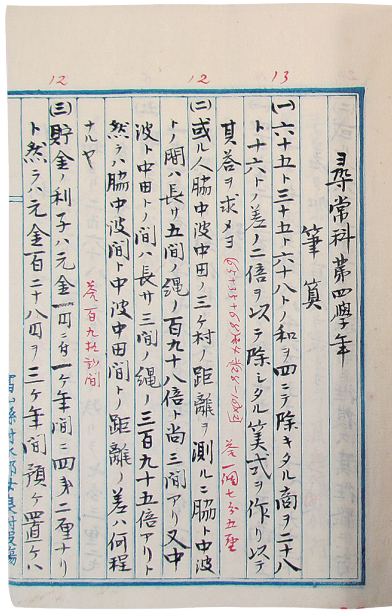 尋常科第四學年
筆算
13
(一)六十五ト三十五ト六十八トノ和ヲ四ニテ除キタル商ヲ二十八
ト十六トノ差ノ二倍ヲ以テ除シタル算式ヲ作リ以テ
其答ヲ求メヨ
答 一個七分五厘
12
(二)或ル人脇中波中田ノ三ケ村ノ距離ヲ測ルニ脇ト中波
トノ間ハ長サ五間ノ縄ノ百九十八倍ト尚三間アリ又中
波ト中田トノ間ハ長サ三間ノ縄ノ三百九十五倍アリト
然ラハ脇中波間ト中波中田間トノ距離ノ差ハ何程
ナルヤ
答 百九拾二間
12
(三)貯金ノ利子ハ元金一円ニ付一ケ年間ニ四銭二厘ナリ
ト然ラハ元金百二十八円ヲ三ケ年間預ケ置ケハ